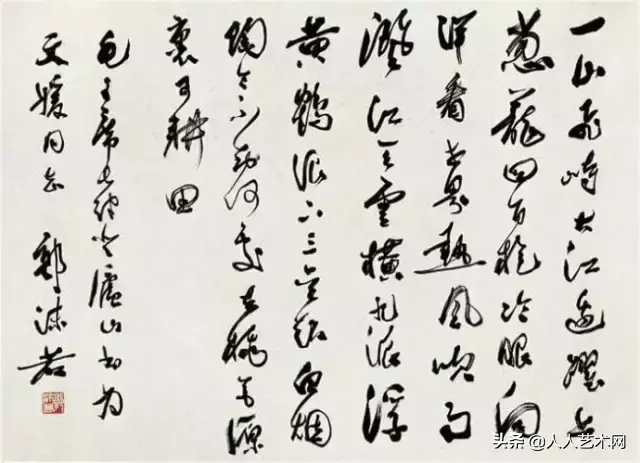 一山飛峙大江邊躍上
葱蘢四百旋冷眼向
洋看世界熱風吹雨
灑江天雲橫九派浮
黄鶴浪下三吴起白烟
陶令不知何處去桃花源
裏可耕田
毛主席七律登廬山書為
文媛同志 郭沫若
头条 @人人艺术网